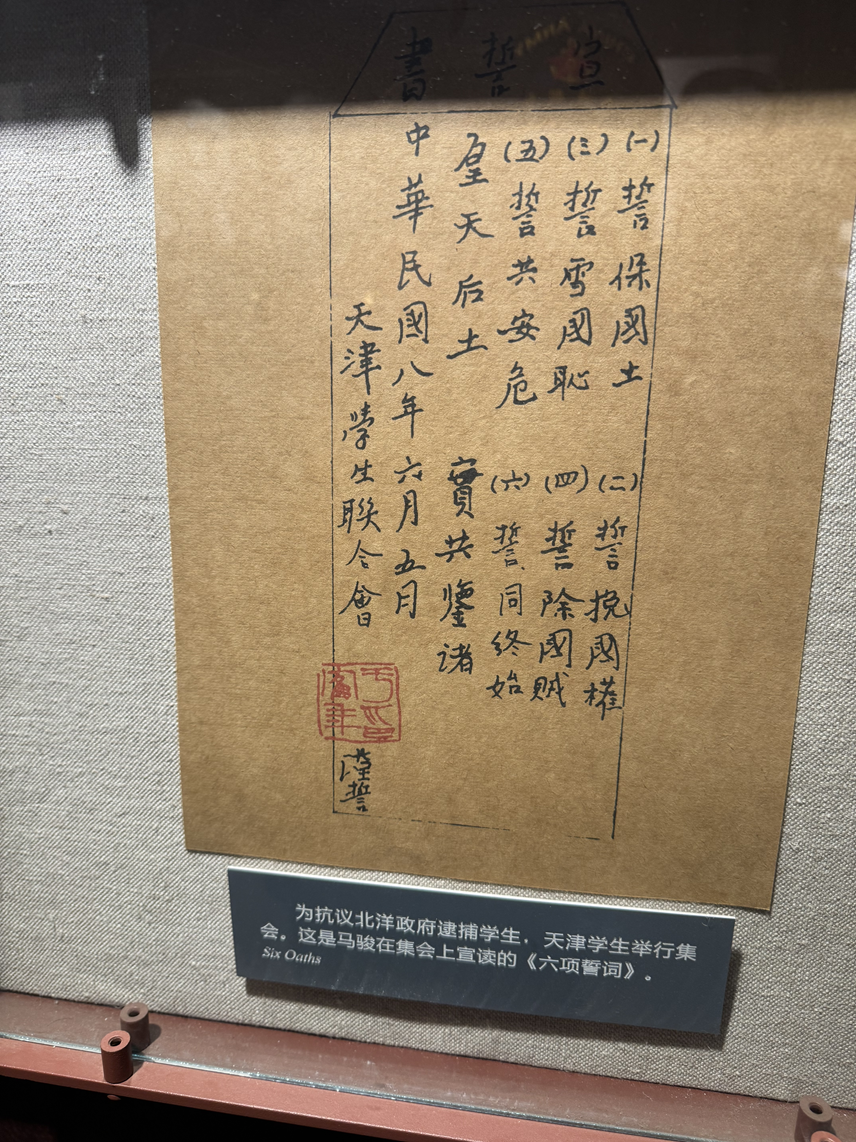 宣誓書
(一)誓保國土 (二)誓挽國權
(三)誓雪國恥 (四)誓除國賊
(五)誓共安危 (六)誓同終始
皇天后土 實共鑒諸
中華民國八年六月五月
天津學生聯合會
謹誓
为抗议北洋政府逮捕学生，天津学生举行集
会。这是马骏在集会上宣读的《六项誓词》。
Six Oaths